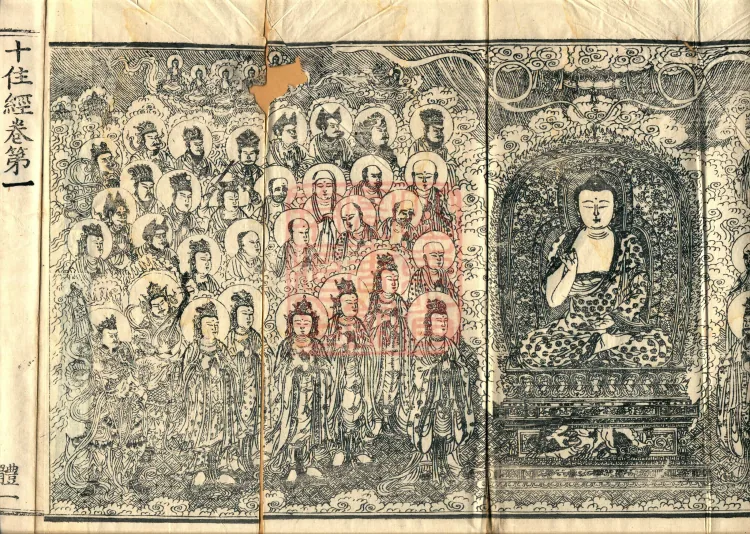 十住經卷第一
體一